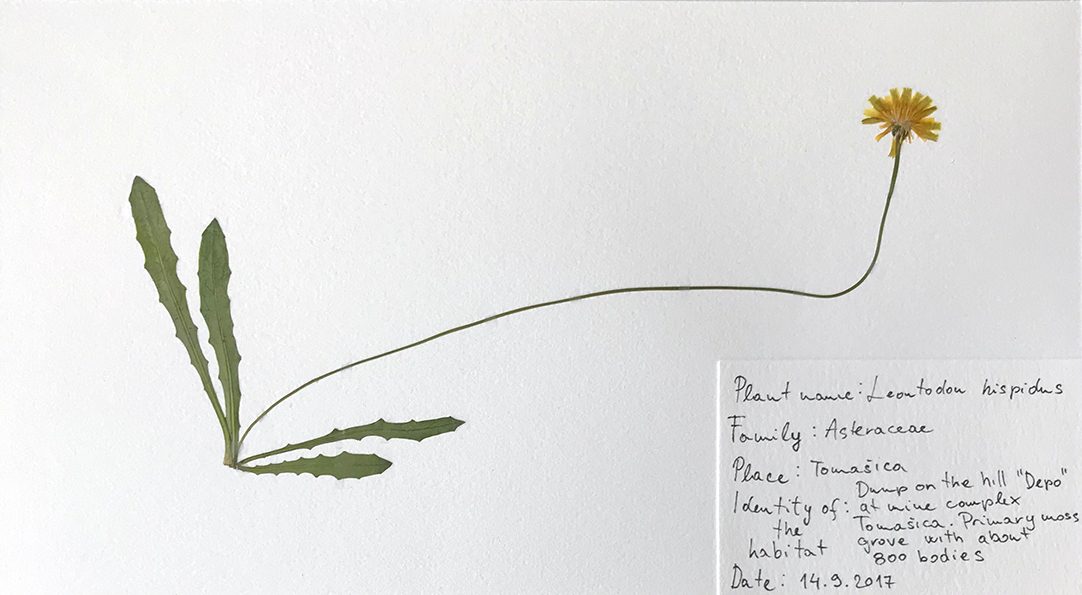 Plant name: Leontodon hispidus
Family: Asteraceae
Place: Tomašica
Identity of: Dump on the hill "Depo"
the at mine complex
habitat Tomašica. Primary moss
grove with about
800 bodies
Date: 14.9.2017